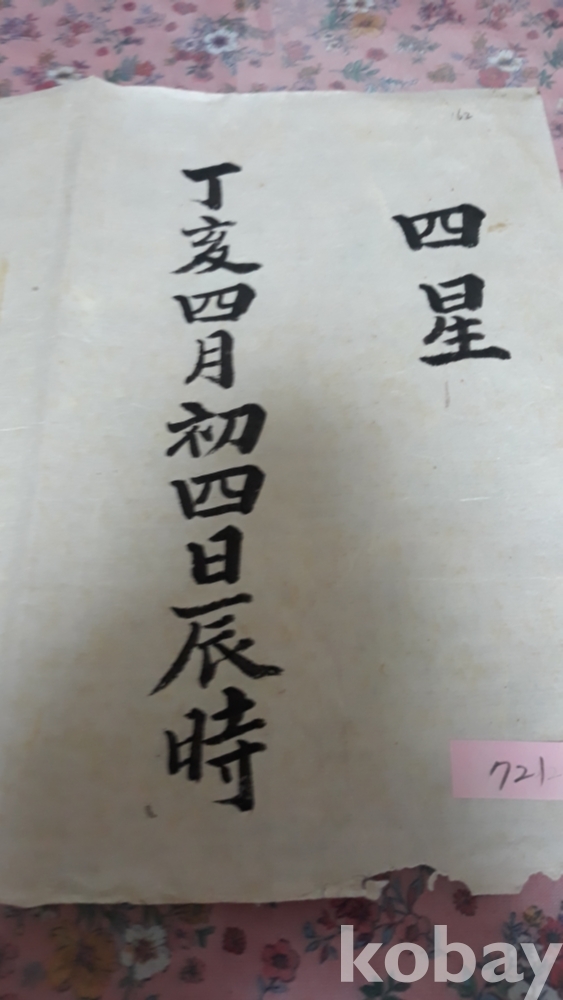 四星
丁亥四月初四日辰時
162
721
kobay